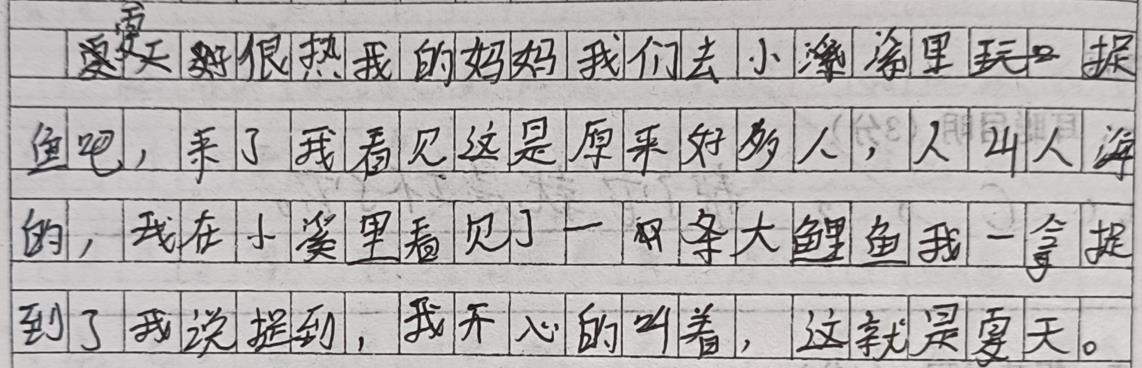 夏天很热我的妈妈我们去小溪里玩捉
鱼吧，来了我看见这是原来好多人，人山人海
的，我在小溪里看见了一条大鲤鱼我一拿捉
到了我说捉到，我开心的叫着，这就是夏天。